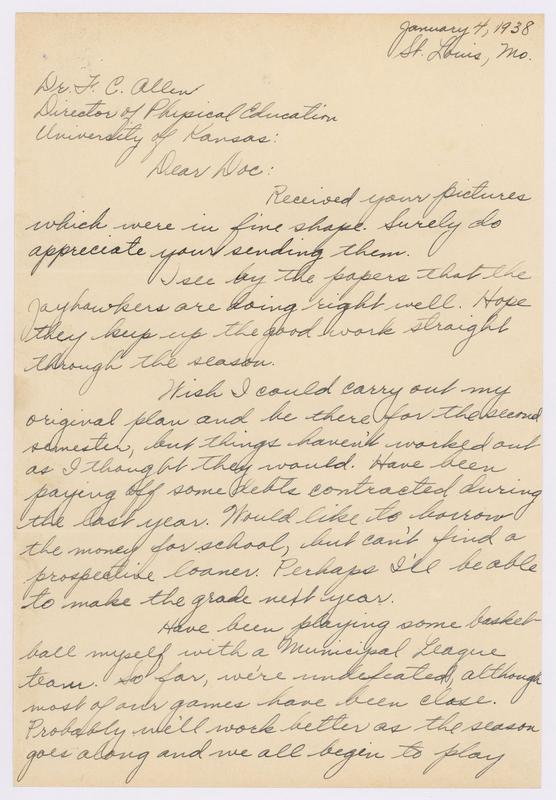 January 4, 1938
St. Louis, Mo.
Dr. F. C. Allen
Director of Phipical Education
University of Kansas:
Dear Doc:
Received your pictures
which were in fine shape. Surely do
appreciate your sending them.
I see by the papers that the
Jayhawkers are doing right well. Hope
they keep up the good work straight
through the season.
Wish I could carry out my
original plan and be there for the second
semester, but things haven't worked out
as I thought they would. Have been
paying off some debts contracted during
the last year. Would like to borrow
the money for school, but can't find a
prospective loaner. Perhaps I'll be able
to make the grade next year.
Have been playing some basket-
ball myself with a Municipal League
team. So far, we're undefeated, although
most of our games have been close.
Probably we'll work better as the season
goes along and we all begin to play